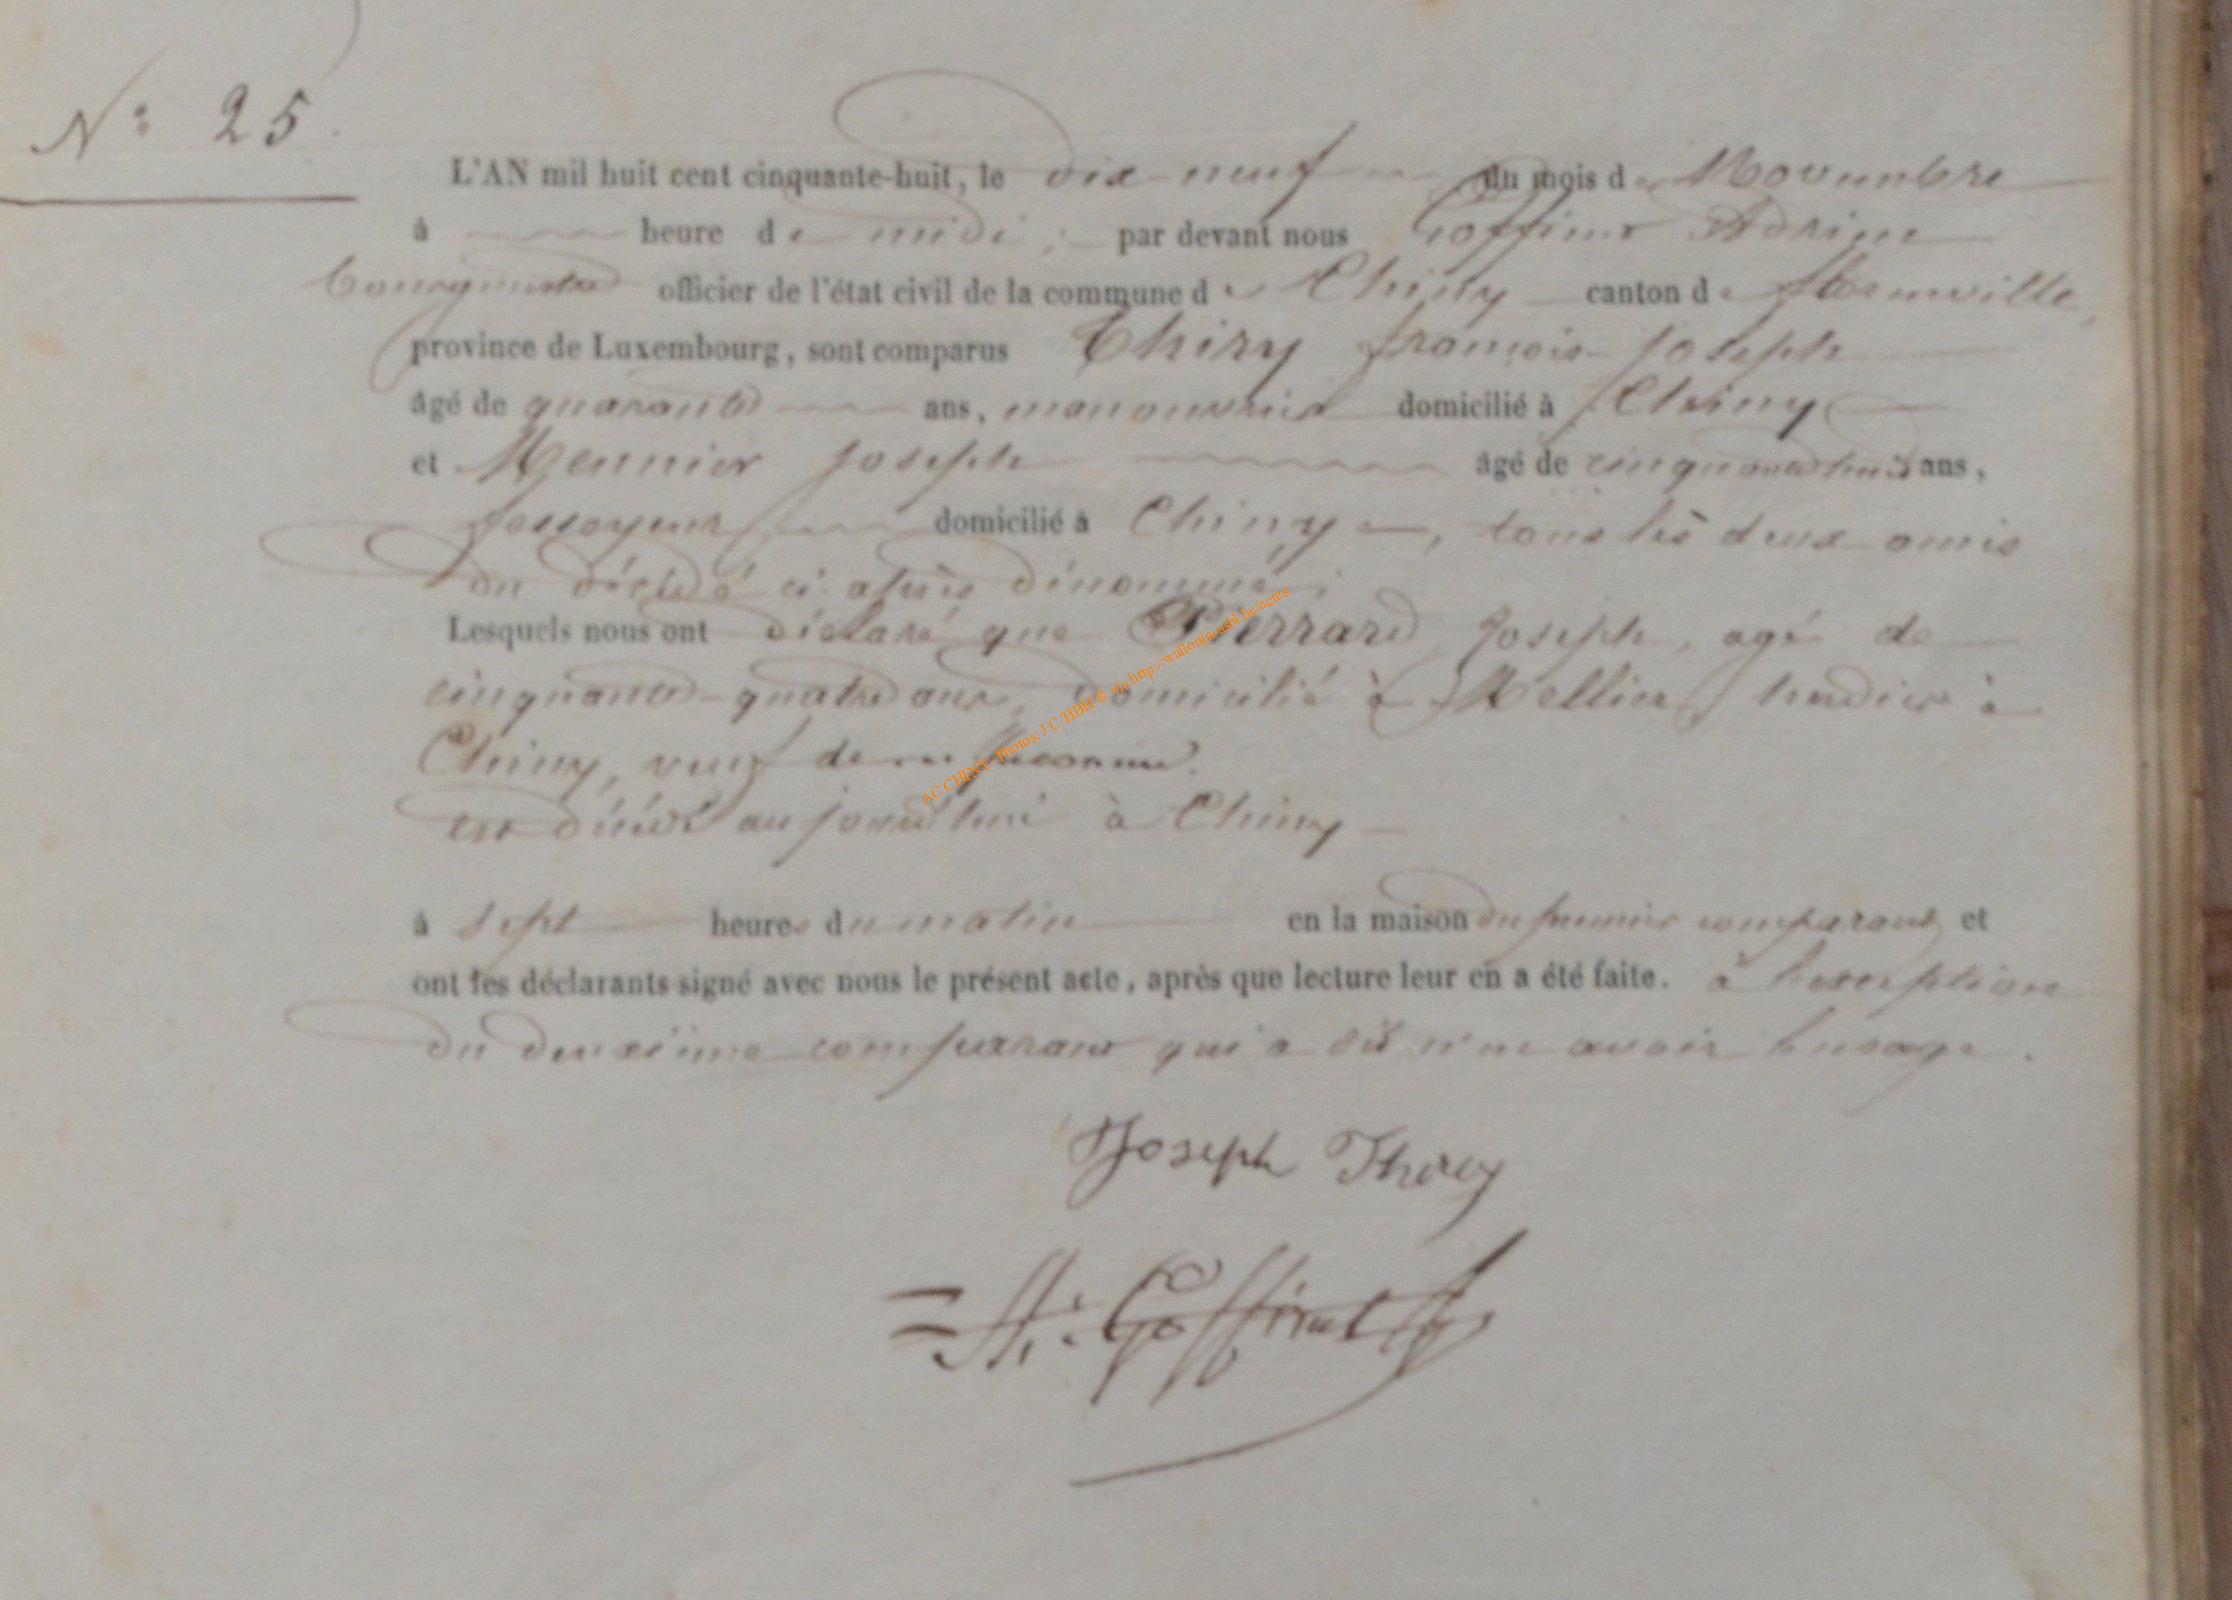 N° 25.
L'AN mil huit cent cinquante-huit, le dix-neuf du mois de Novembre
à heure de midi ; par devant nous Goffinet Adrien
bourgmestre officier de l'état civil de la commune de Chiny canton de
province de Luxembourg, sont comparus Thiry françois-joseph
âgé de quarante ans, manouvrier domicilié à Chiny
et Meunier joseph âgé de cinquante huit ans,
fossoyeur domicilié à Chiny, tous les deux amis
du décédé ci-après dénommé ;
Lesquels nous ont déclaré que Perrard Joseph, agé de
cinquante-quatre ans, domicilié à Mellier, à
Chiny, veuf de
est décédé aujourd'hui à Chiny
à sept heures du matin en la maison du premier comparant et
ont les déclarants signé avec nous le présent acte, après que lecture leur en a été faite. à l'exception
du deuxième comparant qui a dit n'en avoir l'usage.
Joseph Thiry
A: Goffinet
AC CHINY Photos: J C HBH ® via http://wallonia-asbl.be/actes